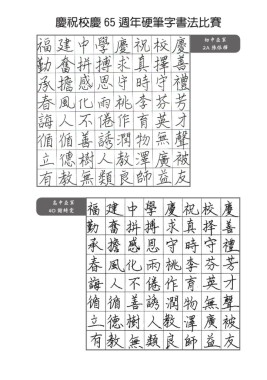 慶祝校慶 65 週年硬筆字書法比賽
初中亞軍
福建中學慶祝校慶
勤奮拼搏求真擇善
承擔感恩守時守禮
春風化雨桃李芬芳
誨人不倦作育英才
循循善誘潤物無聲
立德樹人教澤廣被
有教無類良師益友
高中亞軍
福建中學慶祝校慶
勤奮拼搏求真擇善
承擔感恩守時守禮
春風化雨桃李芬芳
誨人不倦作育英才
循循善誘潤物無聲
立德樹人教澤廣被
有教無類良師益友